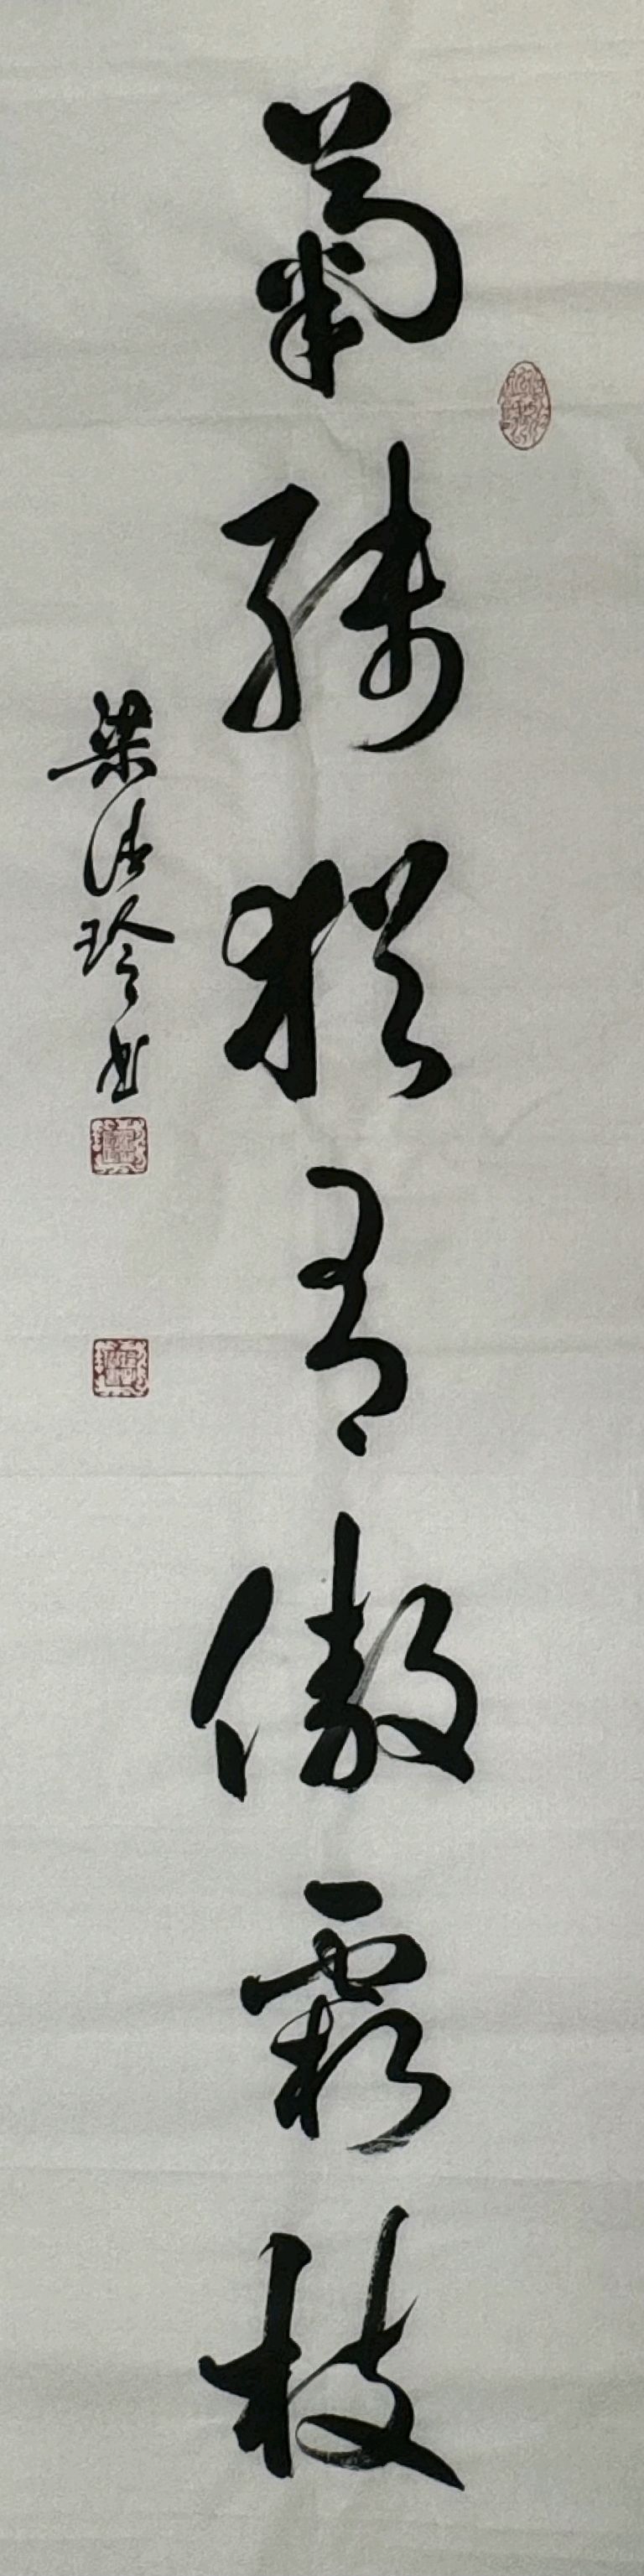 菊残犹有傲霜枝
梁清玲书